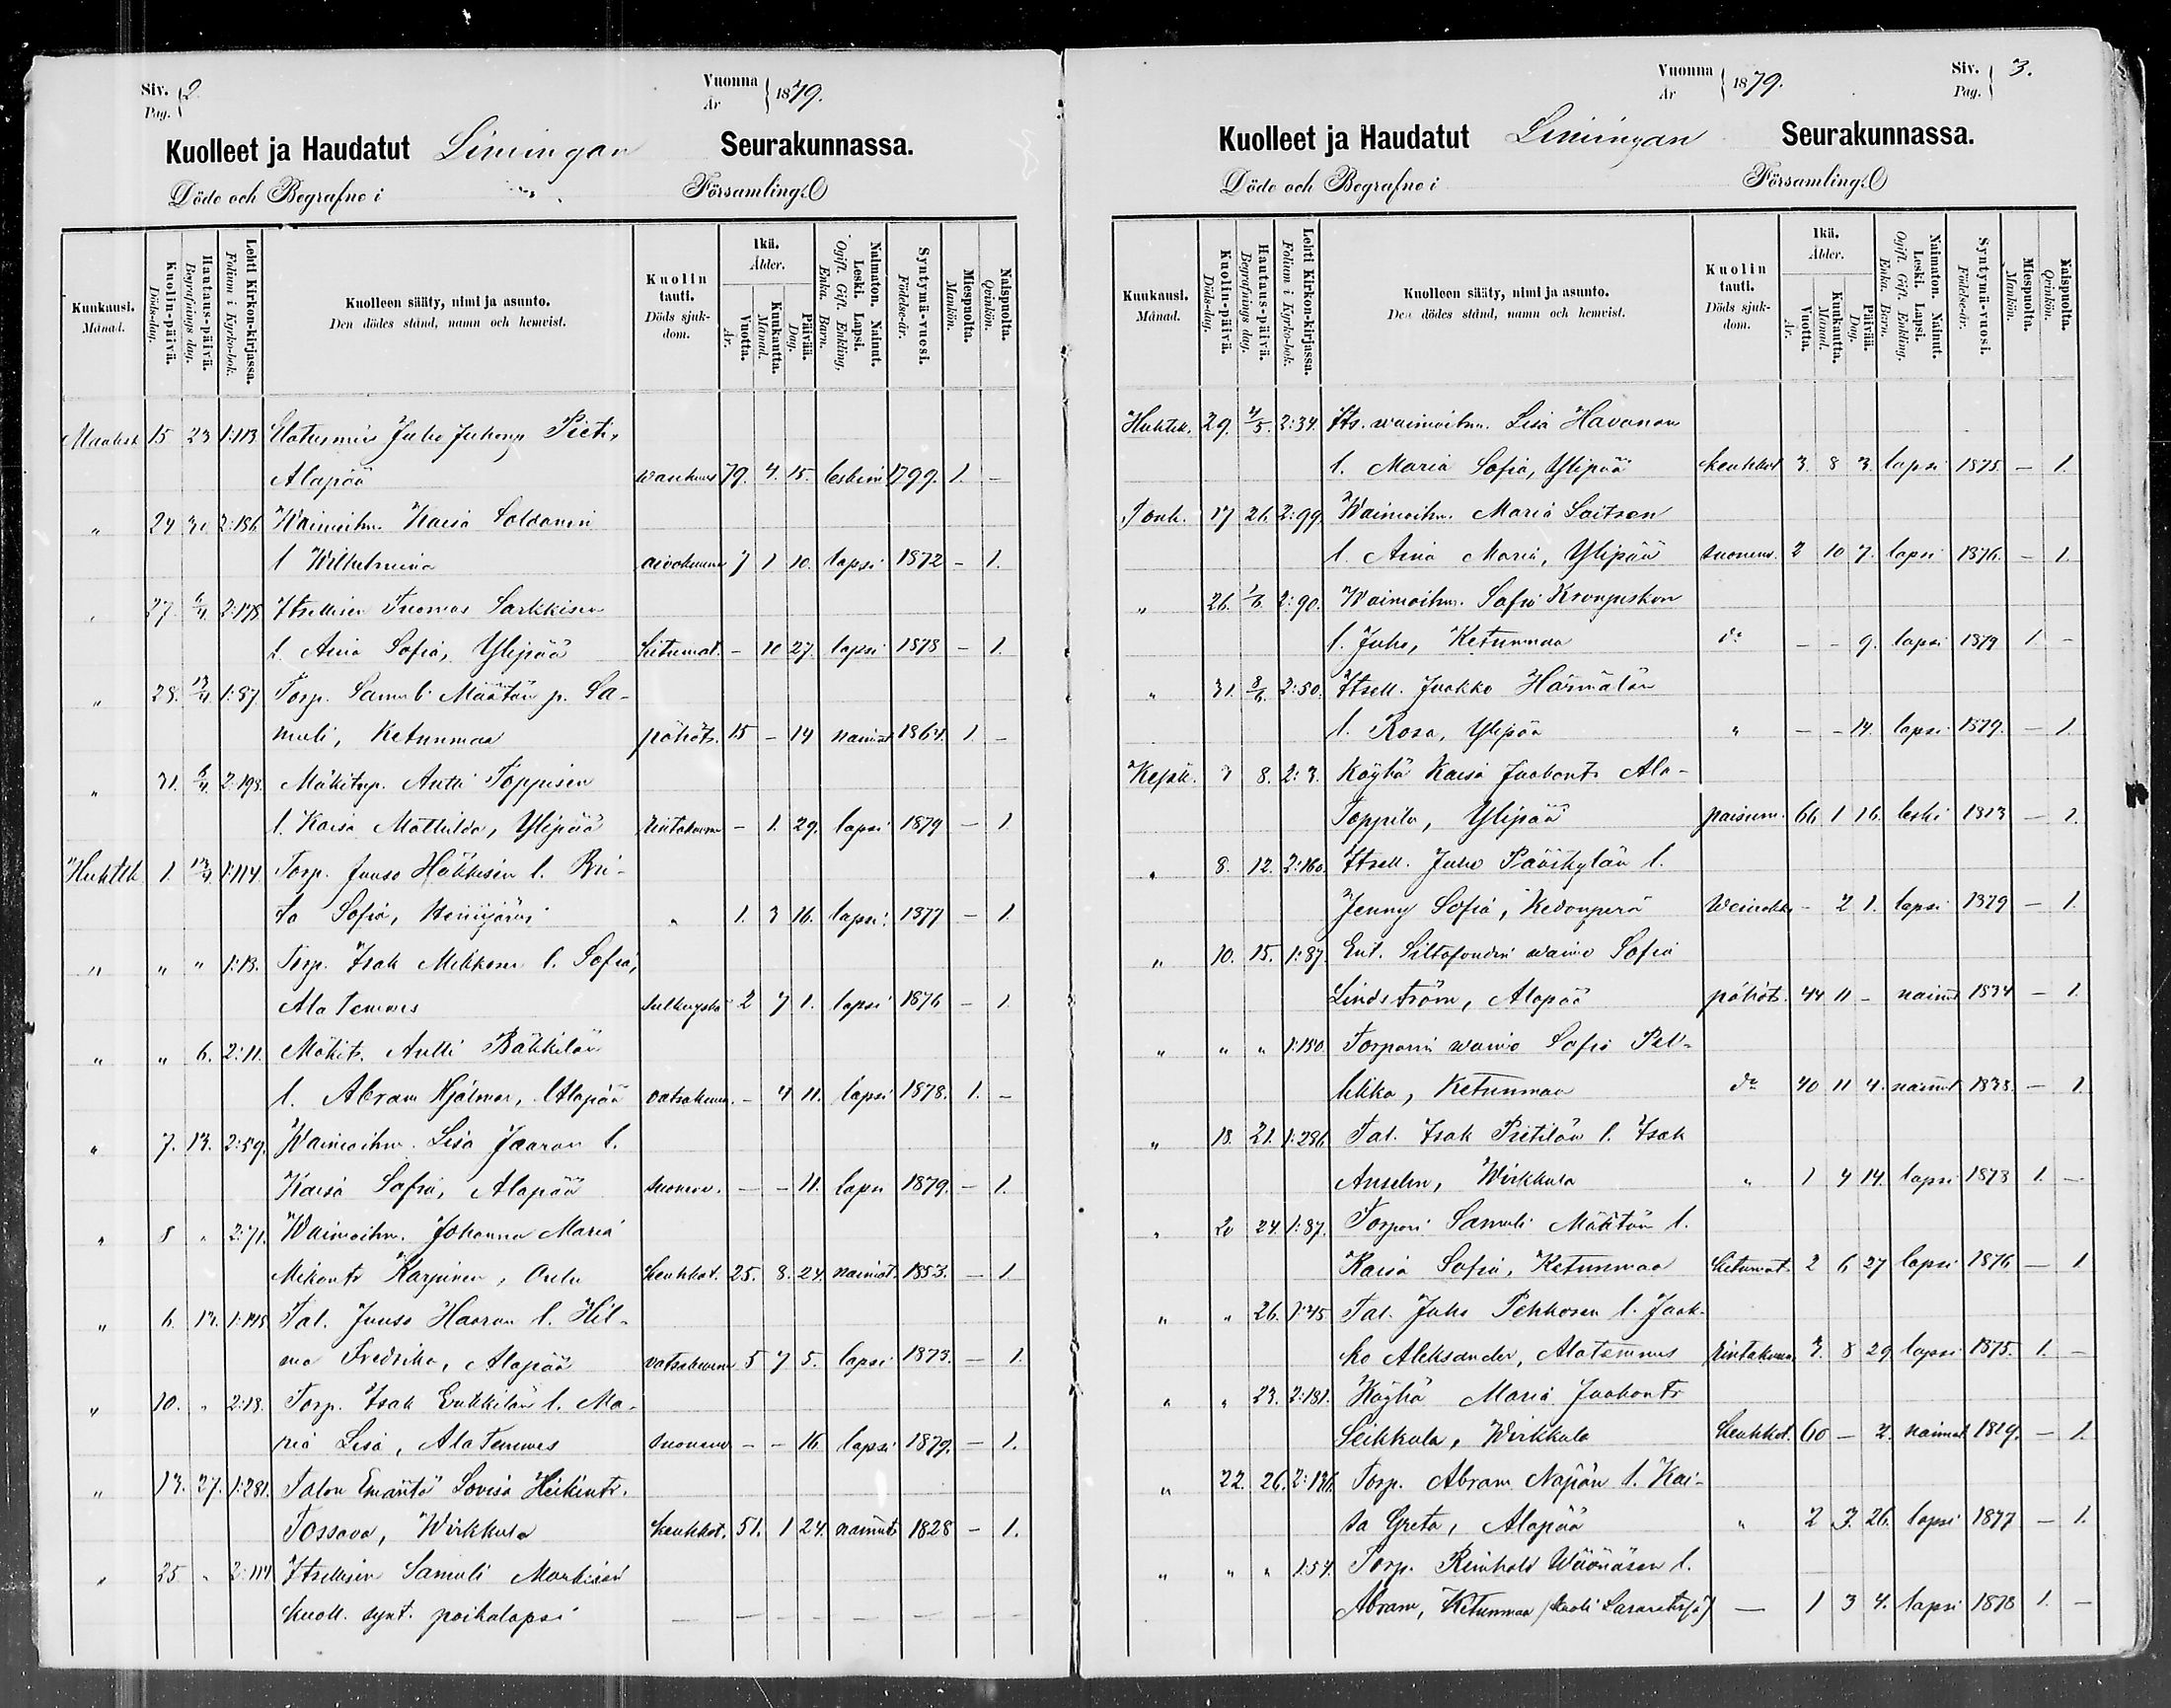 Siv. Pag. 2
Vuonna År 1879.
Kuolleet ja Haudatut Limingan Seurakunnassa.
Döde och Begrafne i Församling.
Kuukausi. Månad.
Kuolin-päivä. Döds-dag.
Hautaus-päivä. Begrafnings dag.
Lehti Kirkon-kirjassa. Folium i Kyrko-bok.
Kuolleen sääty, nimi ja asunto.
Den dödes stånd, namn och hemvist.
Kuolin tauti. Döds sjukdom.
Ikä. Ålder.
Vuotta. År.
Kuukautta. Månad.
Päivää. Dag.
Naimaton. Nainut. Leski. Lapsi. Ogift. Gift. Enkling. Enka. Barn.
Syntymä-vuosi. Födelse-år.
Miespuolta. Mankön.
Naispuolta. Qvinkön.
Maalisk. 15 23 1:113 Juho Juhonp. Pieti,
Alapää 79. 4. 15. leskimi 1799. 1. —
" 24 30. 2:186 Waimoihm. Kaisa
l. Wilhelmina aivokuume 7 1 10. lapsi 1872 — 1.
" 27. 6/4 2:178 Itsellisen Tuomas Sarkkisen
l. Aina Sofia, Ylipää hitumat. — 10 27. lapsi 1878 — 1.
" 28. 13/4 1:87. Torp. Samuli Määtän p. Sa-
muli, Ketunmaa pöhöt. 15 — 14 naimat 1864. 1. —
" 31. 6/4 2:198. Mäkitup. Antti Toppisen
l. Kaisa Mathilda, Ylipää rintakuume — 1. 29. lapsi 1879 — 1.
Huhtik 1. 13/4 1:114. Torp. Juuso Häkkisen l. Bri-
ta Sofia, " 1. 3 16. lapsi 1877 — 1.
" " " 1:13. Torp. Isak Mikkosen l. Sofia,
Ala Temmes 2 7 1. lapsi 1876 — 1.
" " 6. 2:11. Mäkit. Antti
l. Abram Hjalmar, Alapää vatsakuum. — 4 11. lapsi 1878. 1. —
" 7. 13. 2:59. Waimoihm. Lisa Jaaran l.
Kaisa Sofia, Alapää suonenv. — — 11. lapsi 1879. — 1.
" 8 " 2:71. Waimoihm. Johanna Maria
Mikontr. Karpinen, Oulu keuhkot. 25. 8. 24. naimat. 1853. — 1.
" 6. 13. Tal. Juuso Haaran l. Hil-
ma Fredrika, Alapää vatsakuum 5 7 5. lapsi 1873. — 1.
" 10. " 2:18. Torp. Isak l. Ma-
ria Lisa, Ala Temmes suonenv — — 16 lapsi 1879. — 1.
" 13. 27. 1:281. Talon Emäntä Lovisa Heikintr.
Tossava, Wirkkula keuhkot. 51. 1 24. nainut 1828 — 1.
" 25 " 2:114 Itsellisen Samuli
kuoll. synt. poikalapsi — — — — — — —
Vuonna År 1879.
Siv. Pag. 3.
Kuolleet ja Haudatut Limingan Seurakunnassa.
Döde och Begrafne i Församling.
Kuukausi. Månad.
Kuolin-päivä. Döds-dag.
Hautaus-päivä. Begrafnings dag.
Lehti Kirkon-kirjassa. Folium i Kyrko-bok.
Kuolleen sääty, nimi ja asunto.
Den dödes stånd, namn och hemvist.
Kuolin tauti. Döds sjukdom.
Ikä. Ålder.
Vuotta. År.
Kuukautta. Månad.
Päivää. Dag.
Naimaton. Nainut. Leski. Lapsi. Ogift. Gift. Enkling. Enka. Barn.
Syntymä-vuosi. Födelse-år.
Miespuolta. Mankön.
Naispuolta. Qvinkön.
Huhtik. 29. 4/5. 2:34. Its. waimoihm. Lisa Havanan
l. Maria Sofia, Ylipää keuhkot 3. 8 3. lapsi 1875 — 1.
Touk. 17 26. 2:99. Waimoihm. Maria
l. Aina Maria, Ylipää suonenv. 2 10 7. lapsi 1876. — 1.
" 26. 1/6 2:90. Waimoihm. Sofia
l. Juho, Ketunmaa d:o — — 9. lapsi 1879 1. —
" 31. 8/6. 2:50. Itsell. Jaakko Härmälän
l. Rosa, Ylipää " — — 14. lapsi 1879. — 1.
Kesäk. 3 8. 2:3. Köyhä Kaisa Jaakontr. Ala-
Toppila, Ylipää paisum. 66 1 16. leski 1813 — 1.
" 8. 12. 2:160. Itsell. Juho Pääskylän l.
Jenny Sofia, Kedonperä — 2 1. lapsi 1879 — 1.
" 10. 15. 1:87. Ent. Siltafoudin waimo Sofia
Lindström, Alapää pöhöt. 44 11 — nainut 1834 — 1.
" " " 1:180 Torparin waimo Sofia Pel-
likka, Ketunmaa d:o 40 11 4. nainut 1838. — 1.
" 18. 21. 1:286 Tal. Isak Pietilän l. Isak
Anselm, Wirkkula " 1 4 14. lapsi 1878 1. —
" 20 24. 1:87. Torpari Samuli Määtän l.
Kaisa Sofia, Ketunmaa hitumat. 2 6 27 lapsi 1876 — 1
" " 26. 1:45 Tal. Juho Pehkosen l. Jaak-
ko Aleksander, Alatemmes rintakuum. 3. 8 29 lapsi 1875. 1. —
" " 23. 2:181. Köyhä Maria Jaakontr.
Seikkala, Wirkkula keuhkot. 60 — 2. naimat 1819. — 1.
" 22. 26. 2:136. Torp. Abram l. Kai-
sa Greta, Alapää " 2 3. 26. lapsi 1877 — 1.
" " " 1:54. Torp. Reinhold Wäänäsen l.
Abram, Ketunmaa — 1 3 4. lapsi 1878 1. —